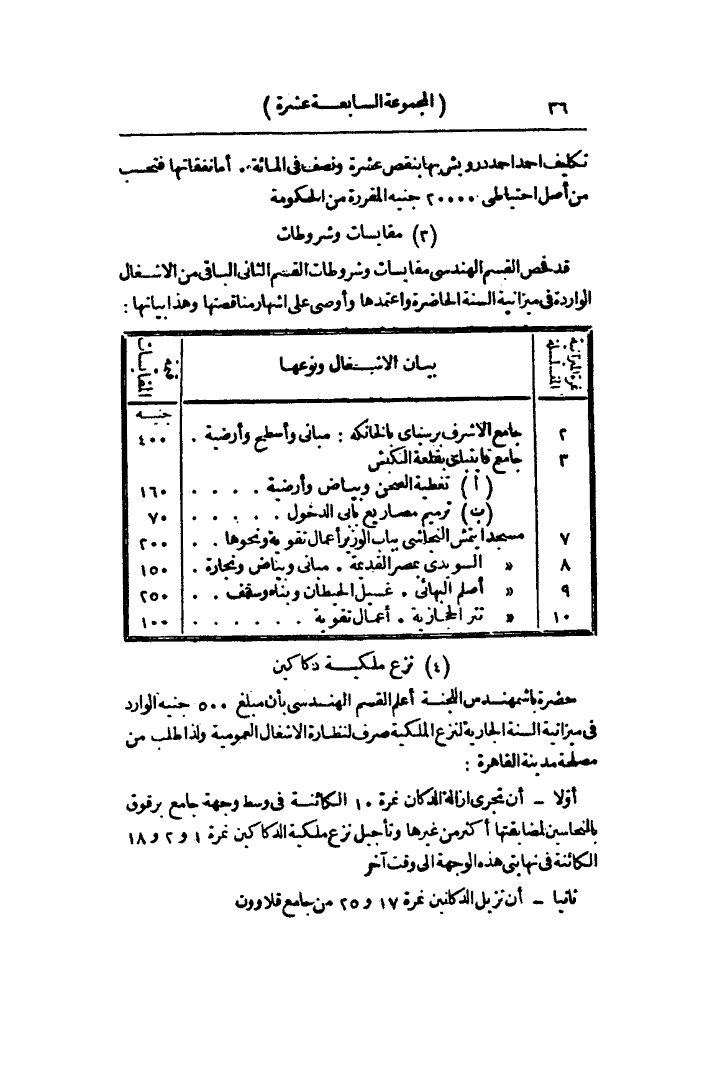 ٣٦ (المجموعة السابعة عشرة)
تكاليف احمد احمد درويش بها بنقص عشرة ونصف فى المائة. أما نفقاتها فتحسب
من أصل احتياطى ٢٠٠٠٠ جنيه المقررة من الحكومة
(٣) مقايسات وشروطات
قد فحص القسم الهندسى مقايسات وشروطات القسم الثانى الباقى من الاشغال
الواردة فى ميزانية السنة الحاضرة واعتمدها وأوصى على اشهار مناقصتها وهذا بيانها :
نمرة الميزانية المسلسلة بيان الاشغال ونوعها قيمة المقايسات
جنيه
٢ جامع الاشرف برسباى بالخانكه : مبانى وأسطح وأرضية . ٤٠٠
٣ جامع قايتباى بقلعة الكبش
(أ) تغطية الصحن وبياض وأرضية . . . . . ١٦٠
(ب) ترميم مصاريع بابى الدخول . . . . . ٧٠
٧ مسجد ايتمش النجاشى بباب الوزير أعمال تقوية ونحوها . . ٢٠٠
٨ » السويدى بمصر القديمة . مبانى وبياض ونجارة . . ١٥٠
٩ » أصلم البهائى . غسيل الحيطان وبناء وسقف . . ٢٥٠
١٠ » تتر الحجازية . أعمال تقوية . . . . . . ١٠٠
(٤) نزع ملكية دكاكين
حضرة باشمهندس اللجنة أعلم القسم الهندسى بأن مبلغ ٥٠٠ جنيه الوارد
فى ميزانية السنة الجارية لنزع الملكية صرف لنظارة الاشغال العمومية ولذا طلب من
مصلحة مدينة القاهرة :
أوّلا ــ أن تجرى ازالة الدكان نمرة ١٠ الكائنة فى وسط وجهة جامع برقوق
بالنحاسين لمضايقتها أكثر من غيرها وتأجيل نزع ملكية الدكاكين نمرة ١ و ٢ و ١٨
الكائنة فى نهايتى هذه الوجهة الى وقت آخر
ثانيا ــ أن تزيل الدكانين نمرة ١٧ و ٢٥ من جامع قلاوون